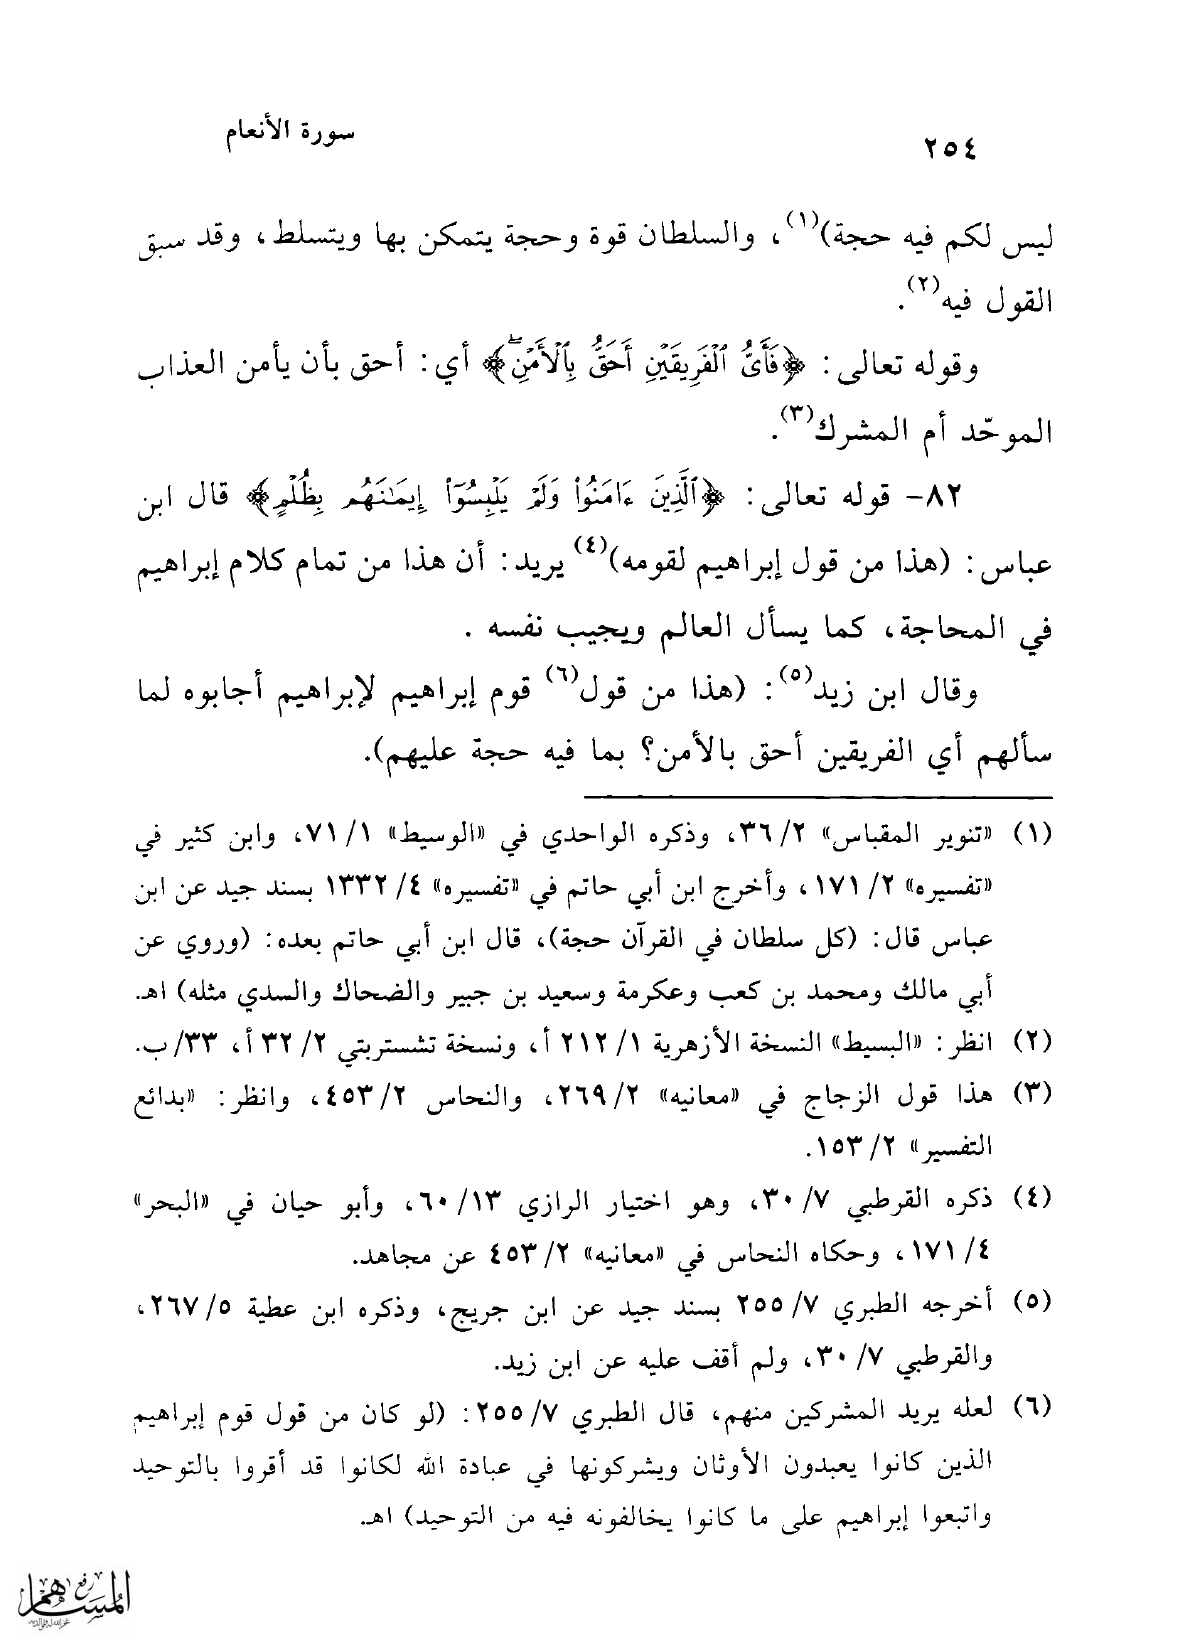 سورة الأنعام
٢٥٤
ليس لكم فيه حجة)(١)، والسلطان قوة وحجة يتمكن بها ويتسلط، وقد سبق
القول فيه(٢).
وقوله تعالى: ﴿فَأَىُّ ٱلْفَرِيقَيْنِ أَحَقُّ بِٱلْأَمْنِۖ﴾ أي: أحق بأن يأمن العذاب
الموحّد أم المشرك(٣).
٨٢- قوله تعالى: ﴿ٱلَّذِينَ ءَامَنُوا۟ وَلَمْ يَلْبِسُوٓا۟ إِيمَـٰنَهُم بِظُلْمٍ﴾ قال ابن
عباس: (هذا من قول إبراهيم لقومه)(٤) يريد: أن هذا من تمام كلام إبراهيم
في المحاجة، كما يسأل العالم ويجيب نفسه .
وقال ابن زيد(٥): (هذا من قول(٦) قوم إبراهيم لإبراهيم أجابوه لما
سألهم أي الفريقين أحق بالأمن؟ بما فيه حجة عليهم).
(١) «تنوير المقباس» ٢/ ٣٦، وذكره الواحدي في «الوسيط» ١/ ٧١، وابن كثير في
«تفسيره» ٢/ ١٧١، وأخرج ابن أبي حاتم في «تفسيره» ٤/ ١٣٣٢ بسند جيد عن ابن
عباس قال: (كل سلطان في القرآن حجة)، قال ابن أبي حاتم بعده: (وروي عن
أبي مالك ومحمد بن كعب وعكرمة وسعيد بن جبير والضحاك والسدي مثله) اهـ.
(٢) انظر: «البسيط» النسخة الأزهرية ١/ ٢١٢ أ، ونسخة تشستربتي ٢/ ٣٢ أ، ٣٣/ ب.
(٣) هذا قول الزجاج في «معانيه» ٢/ ٢٦٩، والنحاس ٢/ ٤٥٣، وانظر: «بدائع
التفسير» ٢/ ١٥٣.
(٤) ذكره القرطبي ٧/ ٣٠، وهو اختيار الرازي ١٣/ ٦٠، وأبو حيان في «البحر»
٤/ ١٧١، وحكاه النحاس في «معانيه» ٢/ ٤٥٣ عن مجاهد.
(٥) أخرجه الطبري ٧/ ٢٥٥ بسند جيد عن ابن جريج، وذكره ابن عطية ٥/ ٢٦٧،
والقرطبي ٧/ ٣٠، ولم أقف عليه عن ابن زيد.
(٦) لعله يريد المشركين منهم، قال الطبري ٧/ ٢٥٥: (لو كان من قول قوم إبراهيم
الذين كانوا يعبدون الأوثان ويشركونها في عبادة الله لكانوا قد أقروا بالتوحيد
واتبعوا إبراهيم على ما كانوا يخالفونه فيه من التوحيد) اهـ.